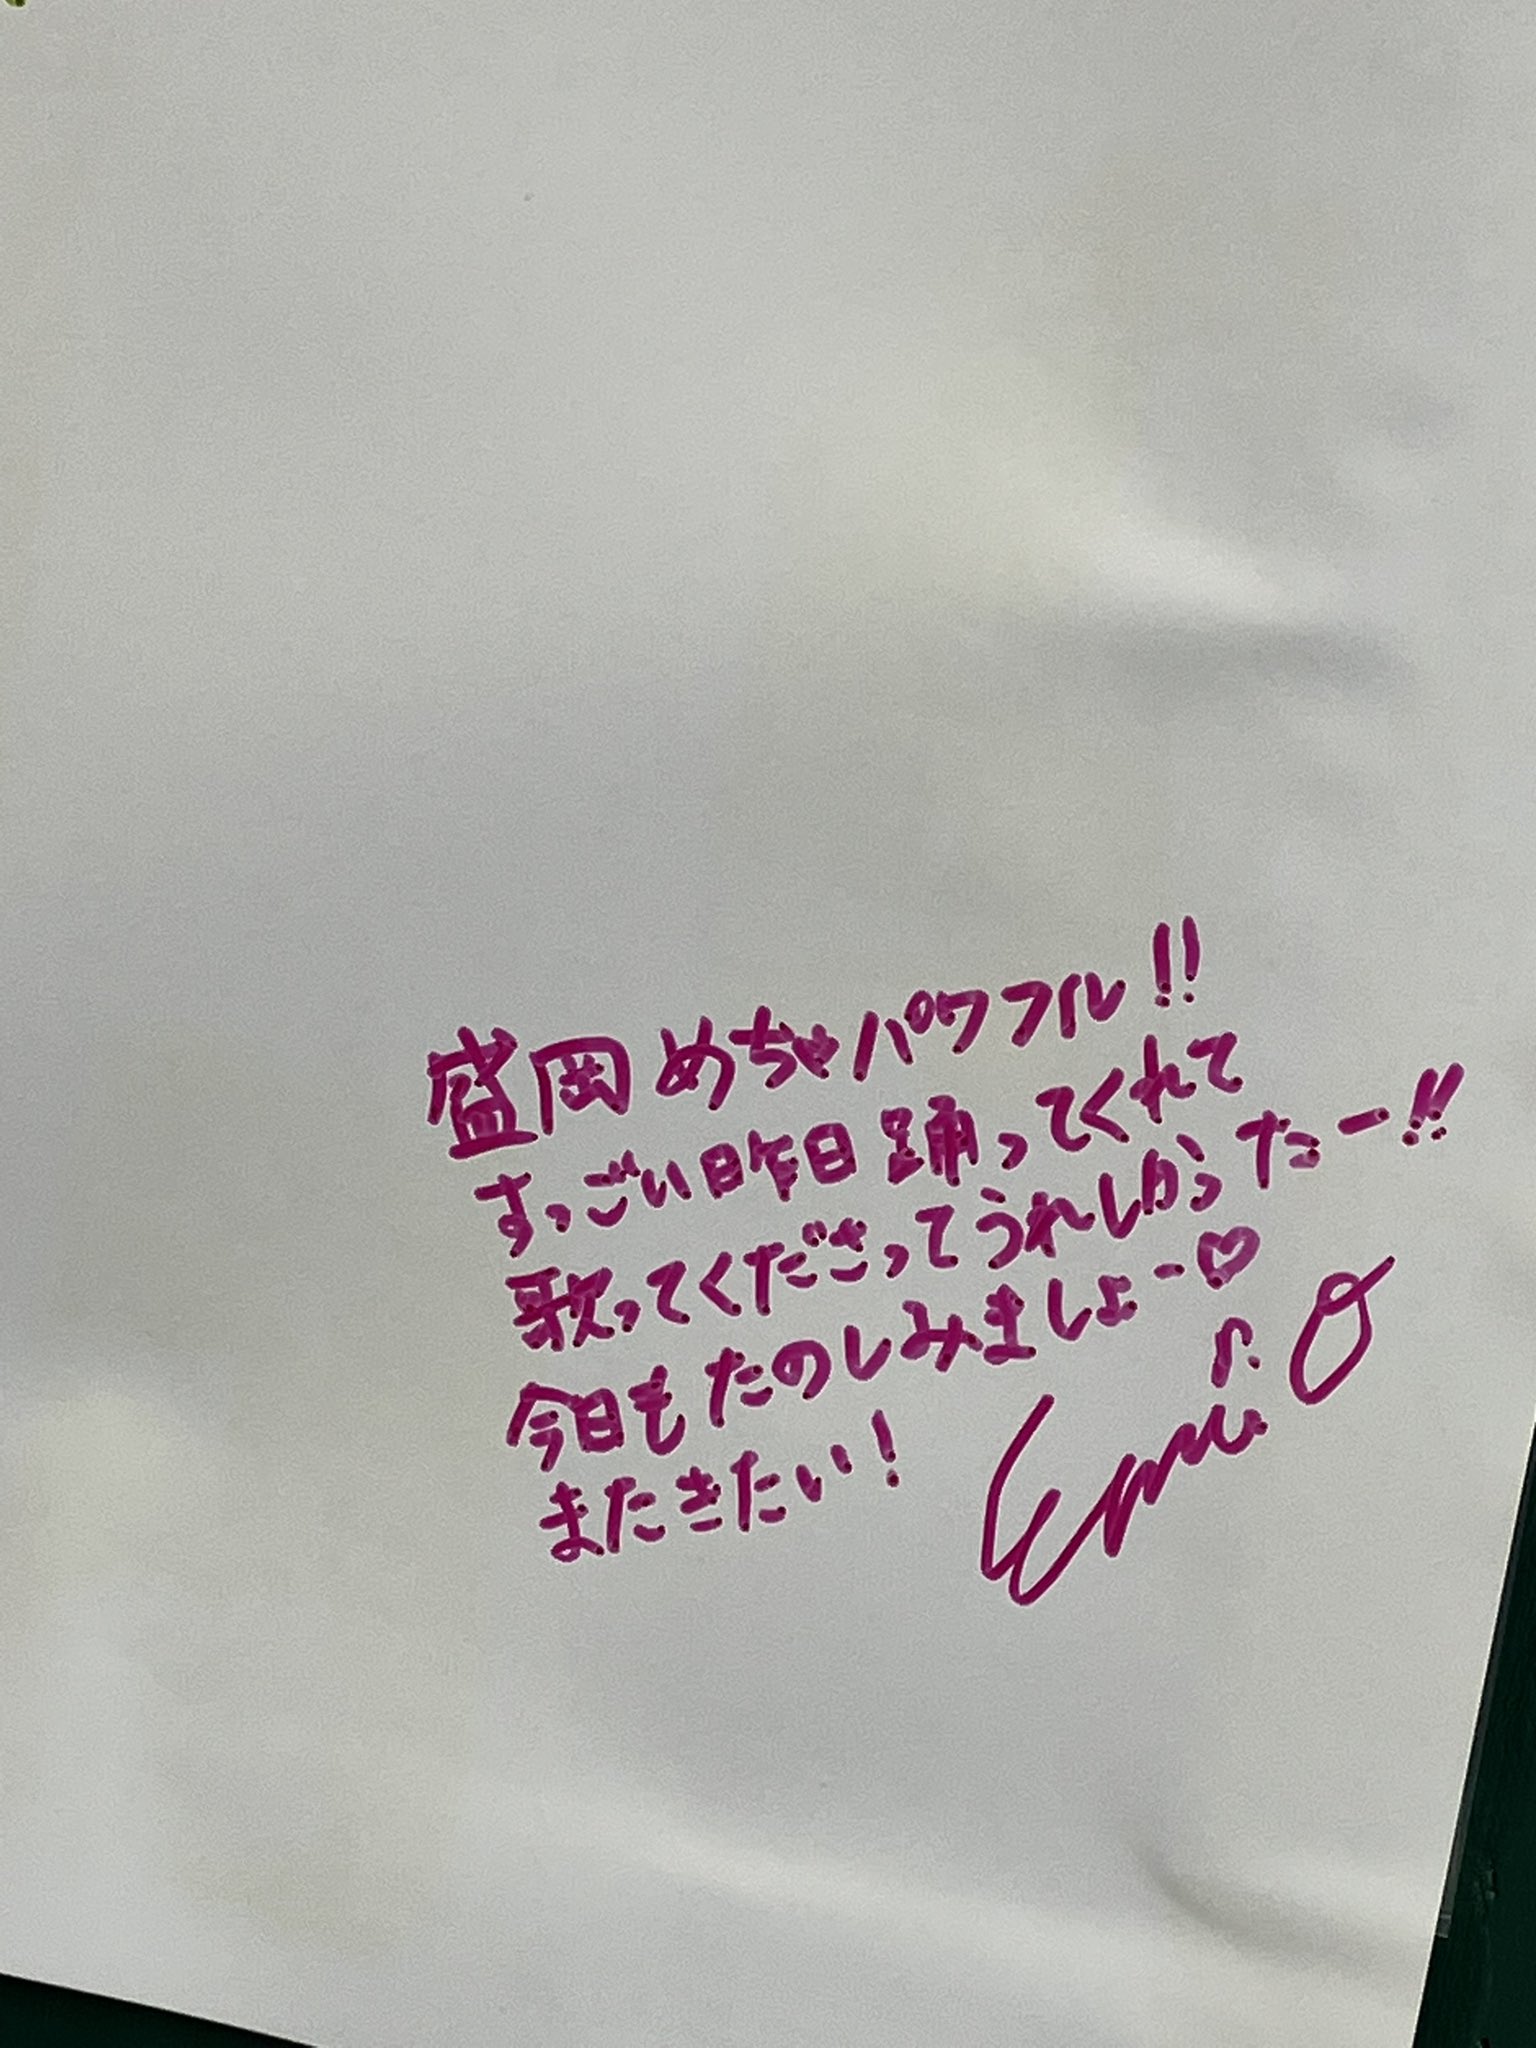 盛岡めちゃパワフル!!
すっごい昨日踊ってくれて
歌ってくださってうれしかったー!!
今日もたのしみましょー♡
またきたい!
Emi.O